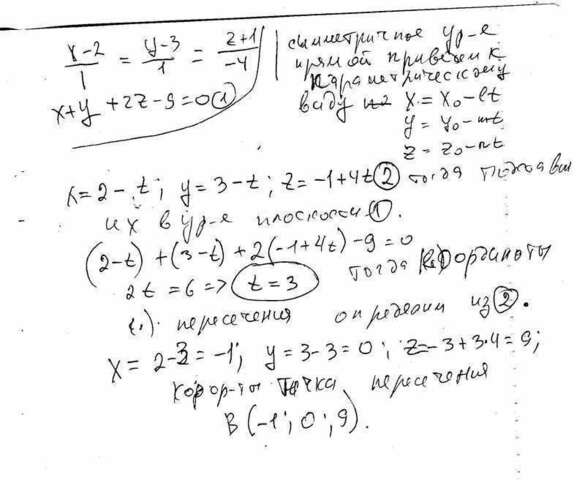 x-2/1 = y-3/1 = z+1/-4
x+y+2z-9=0 (1)
симметричное ур-е
прямой приведем к
параметрическому
виду
x = x₀-lt
y = y₀-mt
z = z₀-nt
x=2-t; y=3-t; z=-1+4t (2) тогда подставим
их в ур-е плоскости (1).
(2-t)+(3-t)+2(-1+4t)-9=0
2t=6 => t=3 тогда координаты
(.) пересечения определим из (2).
x=2-3=-1; y=3-3=0; z=-3+3·4=9;
коор-ты точка пересечения
B(-1; 0; 9).